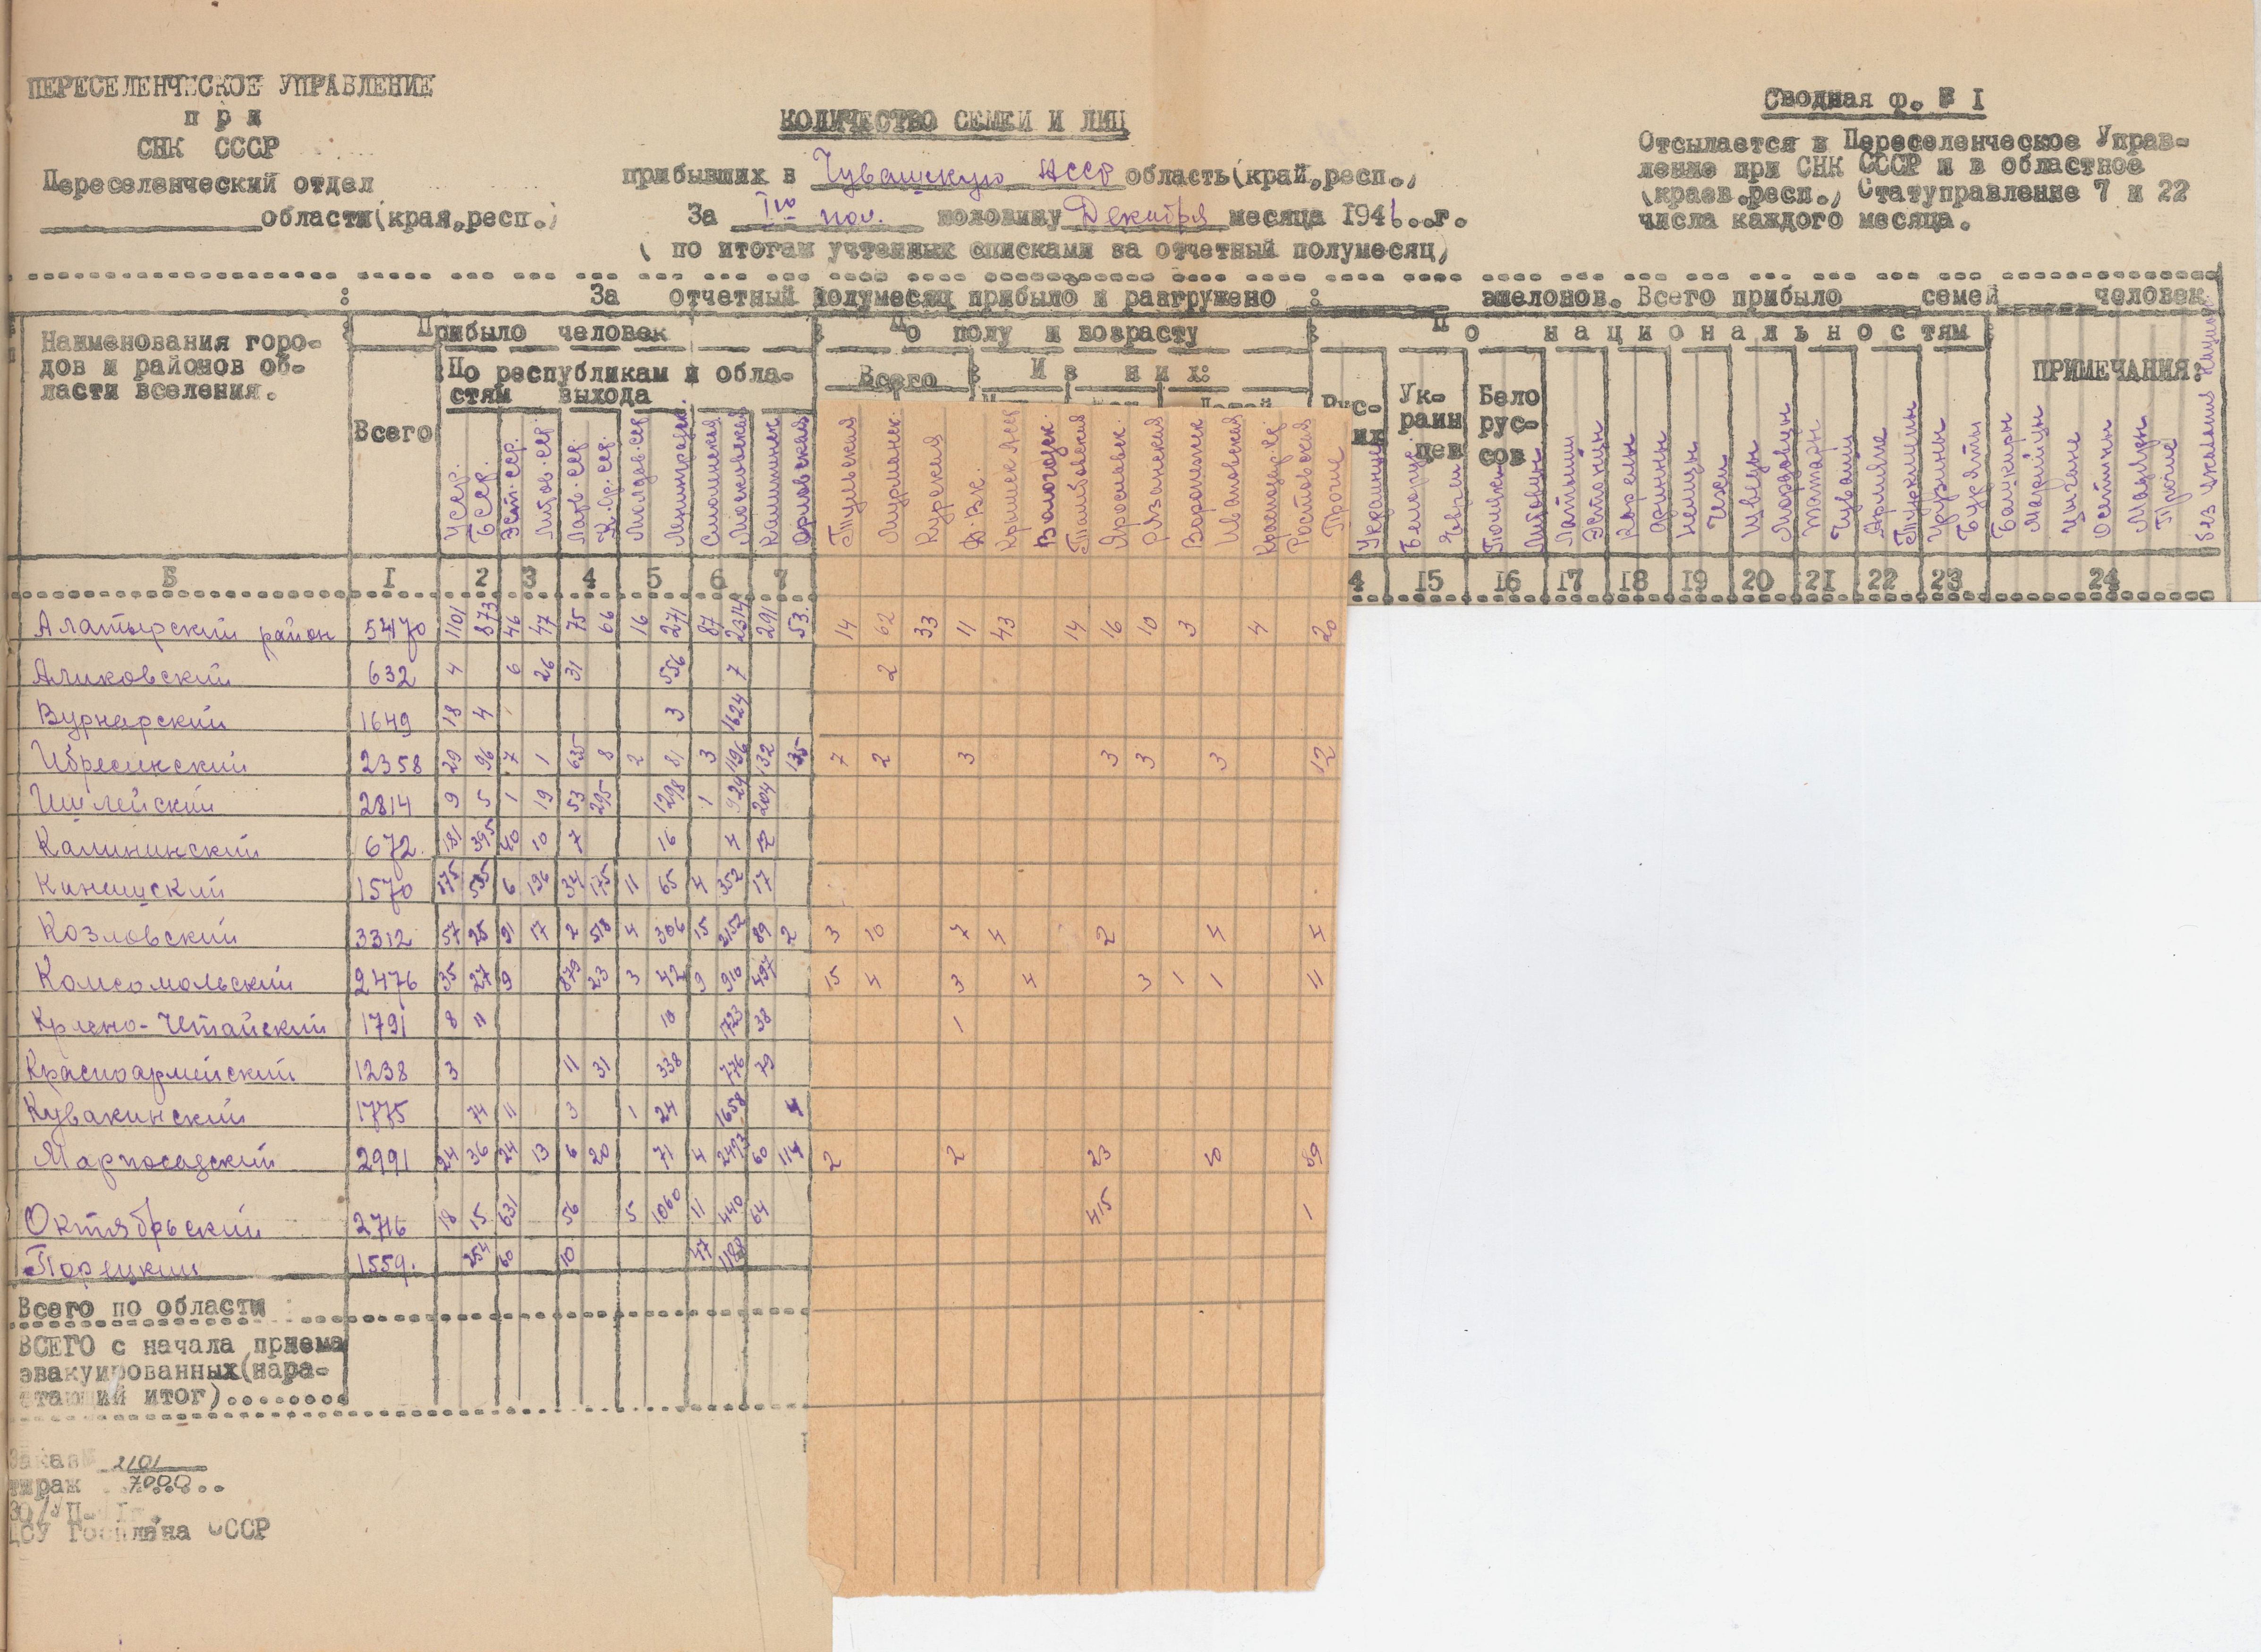 ПЕРЕСЕЛЕНЧЕСКОЕ УПРАВЛЕНИЕ
при
СНК СССР
Переселенческий отдел
области(края,респ.)
КОЛИЧЕСТВО СЕМЕЙ И ЛИЦ
прибывших в Чувашскую АССР область(край,респ.)
За Iую пол. половину Декабря месяца 1941..г.
( по итогам учтенных списками за отчетный полумесяц)
Сводная ф. № I
Отсылается в Переселенческое Управ-
ление при СНК СССР и в областное
(краев.респ.) Статуправление 7 и 22
числа каждого месяца.
За отчетный полумесяц прибыло и разгружено : эшелонов. Всего прибыло семей человек
Наименования горо-
дов и районов об-
ласти вселения.
Прибыло человек
Всего
По республикам и обла-
стям выхода
По полу и возрасту
Всего : Из них:
По национальностям
Рус-
Ук-
раин
цев
Бело
рус-
сов
ПРИМЕЧАНИЯ:
Усср. Бсср. Эст.сср. Литов.сср. Латв.сср. К.Ф.сср. Молдав.сср Ленинградск. Смоленская Московская Калининск Орловская
Тульская Мурманск. Курская Крымск АССР Вологодск. Тамбовская Ярославск. Рязанская Воронежск Ивановская Краснодар.кр Ростовская Прочие
Украинцы Белорусы Евреи Поляки Литовцы Латыши Эстонцы Карелы Финны Немцы Чехи Шведы Молдованцы Татары Чуваши Армяне Туркмены Грузины Буряты Башкиры Марийцы Цыгане Осетины Мадьяры Прочие
Б I 2 3 4 5 6 7 4 15 16 17 18 19 20 21 22 23 24
Алатырский район 5470 1101 873 46 47 75 66 16 271 87 2314 291 53. 14 62 33 11 43 14 16 10 3 4 20
Аликовский 632 4 6 26 31 556 7 2
Вурнарский 1649 18 4 3 1624
Ибресинский 2358 29 96 7 1 635 8 2 81 3 1196 132 135 7 2 3 3 3 3 12
Ишлейский 2814 9 5 1 19 53 295 1298 1 924 204
Калининский 672. 181 395 40 10 7 16 4 12
Канашский 1570 175 535 6 196 34 175 11 65 4 352 17
Козловский 3312 57 25 91 17 2 518 4 306 15 2152 89 2 3 10 7 4 2 4 4
Комсомольский 2476 35 27 9 879 23 3 42 9 910 497 15 4 3 4 3 1 1 11
Красно-Четайский 1791 8 11 10 1723 38 1
Красноармейский 1238 3 11 31 338 776 79
Кувакинский 1775 74 11 3 1 24 1658 4
Марпосадский 2991 24 36 24 13 6 20 71 4 2497 60 114 2 2 23 10 89
Октябрьский 2716 18 15 631 56 5 1060 11 440 64 415 1
Порецкий 1559. 254 60 10 47 1188
Всего по области
ВСЕГО с начала приема
эвакуированных(нара-
стающий итог)........
Заказ№ 2101
тираж 7000
ЦСУ Госплана СССР